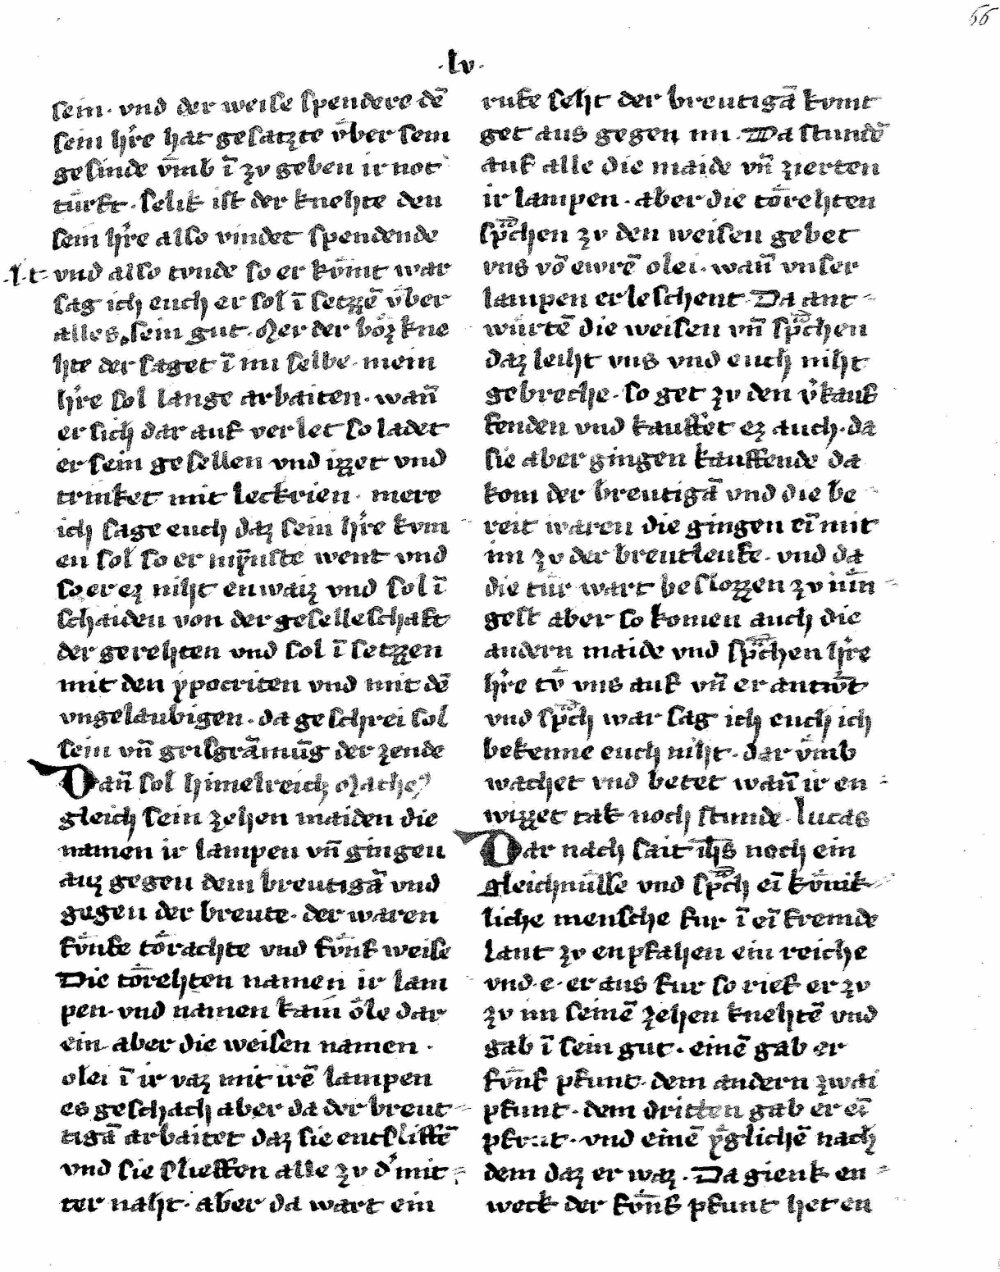 66
·lv·
sein· vnd der weise spendere dē
sein hr̄e hat gesatzte v̄ber sein
gesinde v̄mb ī zv geben ir not
tūrft· selik ist der knehte den
sein hr̄e also vindet spendende
vnd also tvnde so er kōmt war
sag ich euch er sol ī setzzē v̄ber
alles sein gut· Mer der bōz kne
hte der saget ī im selbe· mein
hr̄e sol lange arbaiten· wan̄
er sich dar auf verlet so ladet
er sein gesellen vnd izzet vnd
trinket mit leckrien· mere
ich sage euch daz sein hr̄e kvm
en sol so er mynste went vnd
so er ez niht enwaiz vnd sol ī
schaiden von der geselleschaft
der gerehten vnd sol ī setzzen
mit den ypocriten vnd mit dē
vngelaubigen· da geschrei sol
sein vn̄ grisgrāmūg der zende
Dan̄ sol himelreich Mathe9
gleich sein zehen maiden die
namen ir lampen vn̄ gingen
auz gegen dem breutigā vnd
gegen der breute· der waren
fōnfe tōrachte vnd fōnf weise
Die tōrehten namen ir lam
pen· vnd namen kain ōle dar
ein aber die weisen namen·
olei ī ir vaz mit irē lampen
es geschach aber da der breut
tigā arbaitet daz sie entsliffē
vnd sie slieffen alle zv d' mit
ter naht· aber da wart ein
rufe seht der breutigā kvmt
get aus gegen im· Da stundē
auf alle die maide vn̄ zierten
ir lampen· aber die tōrehten
sp̄chen zv den weisen gebet
vns vō ewrē olei· wan̄ vnser
lampen erleschent Da ant
wūrtē die weisen vn̄ sp̄chen
daz leiht vns vnd euch niht
gebreche· so get zv den v'kauf
fenden vnd kauffet ez auch· da
sie aber gingen kauffende da
kom der breutigā vnd die be
reit waren die gingen eī mit
im zv der breutleufe· vnd da
die tūr wart beslozzen zv iūn
gest aber so komen auch die
andern maide vnd sp̄chen hr̄e
hr̄e tv̄ vns auf vn̄ er antw̄t
vnd sp̄ch war sag ich euch ich
bekenne euch niht· dar v̄mb
wachet vnd betet wan̄ ir en
wizzet tak noch stunde· lucas
Dar nach sait ih̄s noch ein
gleichnūsse vnd sp̄ch eī kōnik
liche mensche fur ī eī fremde
lant zv enpfahen ein reiche
vnd· e· er aus fur so rief er zv
zv im seinē zehen knehtē vnd
gab ī sein gut· einē gab er
fōnf pfunt· dem andern zwai
pfunt· dem dritten gab er eī
pfunt· vnd einē yglichē nach
dem daz er waz· Da gienk en
weck der fōnf pfunt heten